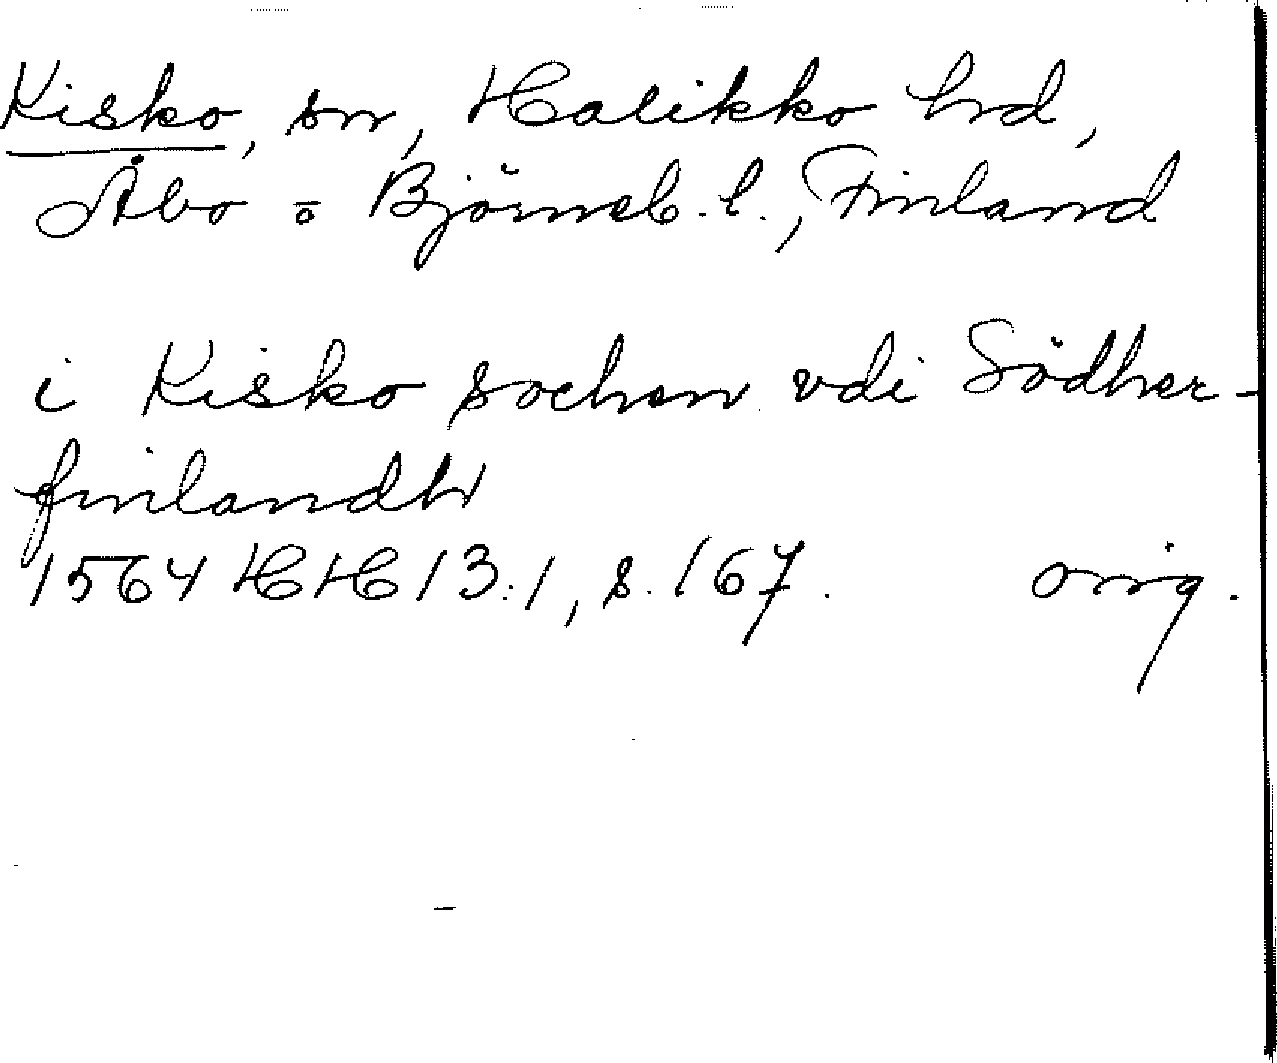 Kisko, sn, Halikko hd,
Åbo o Björneb. l., Finland
i Kisko sochen vdi Södher-
finlandh
1564 HH 13:1, s. 167. orig.